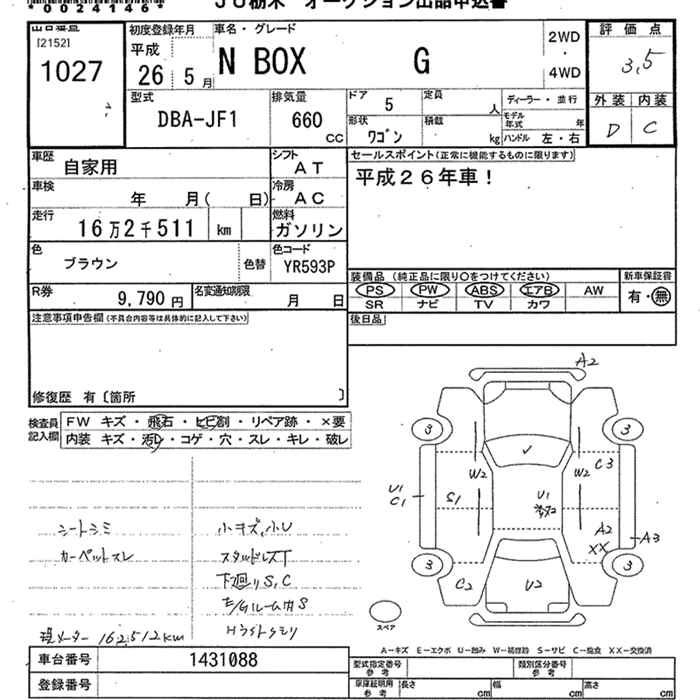 *0024146*
JU栃木 オークション出品申込書
[2152]
1027
初度登録年月
平成
26 5月
車名・グレード
N BOX G
2WD
・
4WD
評価点
3,5
外装 内装
D C
型式
DBA-JF1
排気量
660 CC
ドア 5
定員 人
形状 ワゴン
積載 kg
ディーラー・並行
モデル年式 年
ハンドル 左・右
車歴 自家用
シフト AT
車検 年 月( 日)
冷房 AC
走行 16万2千511 km
燃料 ガソリン
色 ブラウン
色替
色コード YR593P
R券 9,790円
名変通知期限 月 日
セールスポイント(正常に機能するものに限ります)
平成26年車!
装備品 (純正品に限り〇をつけてください)
新車保証書
PS PW ABS エアB AW
有・無
SR ナビ TV カワ
後日品
注意事項申告欄(不具合内容等は具体的に記入して下さい)
修復歴 有〔箇所 〕
検査員
記入欄
FW キズ・飛石・ヒビ割・リペア跡・×要
内装 キズ・汚レ・コゲ・穴・スレ・キレ・破レ
シートシミ
カーペットスレ
小キズ,小U
スタッドレスT
下廻りS,C
E/GルームサS
Hライトクモリ
現メーター 162,512km
A2
3 3
W2 W2 C3
U1
C1
S1
U1
A2
XX
A3
3 3
C2 U2
スペア
A-キズ E-エクボ U-凹み W-補修跡 S-サビ C-腐食 XX-交換済
車台番号 1431088
登録番号
型式指定番号
参考
類別区分番号
参考
車庫証明用
参考
長さ cm 幅 cm 高さ cm